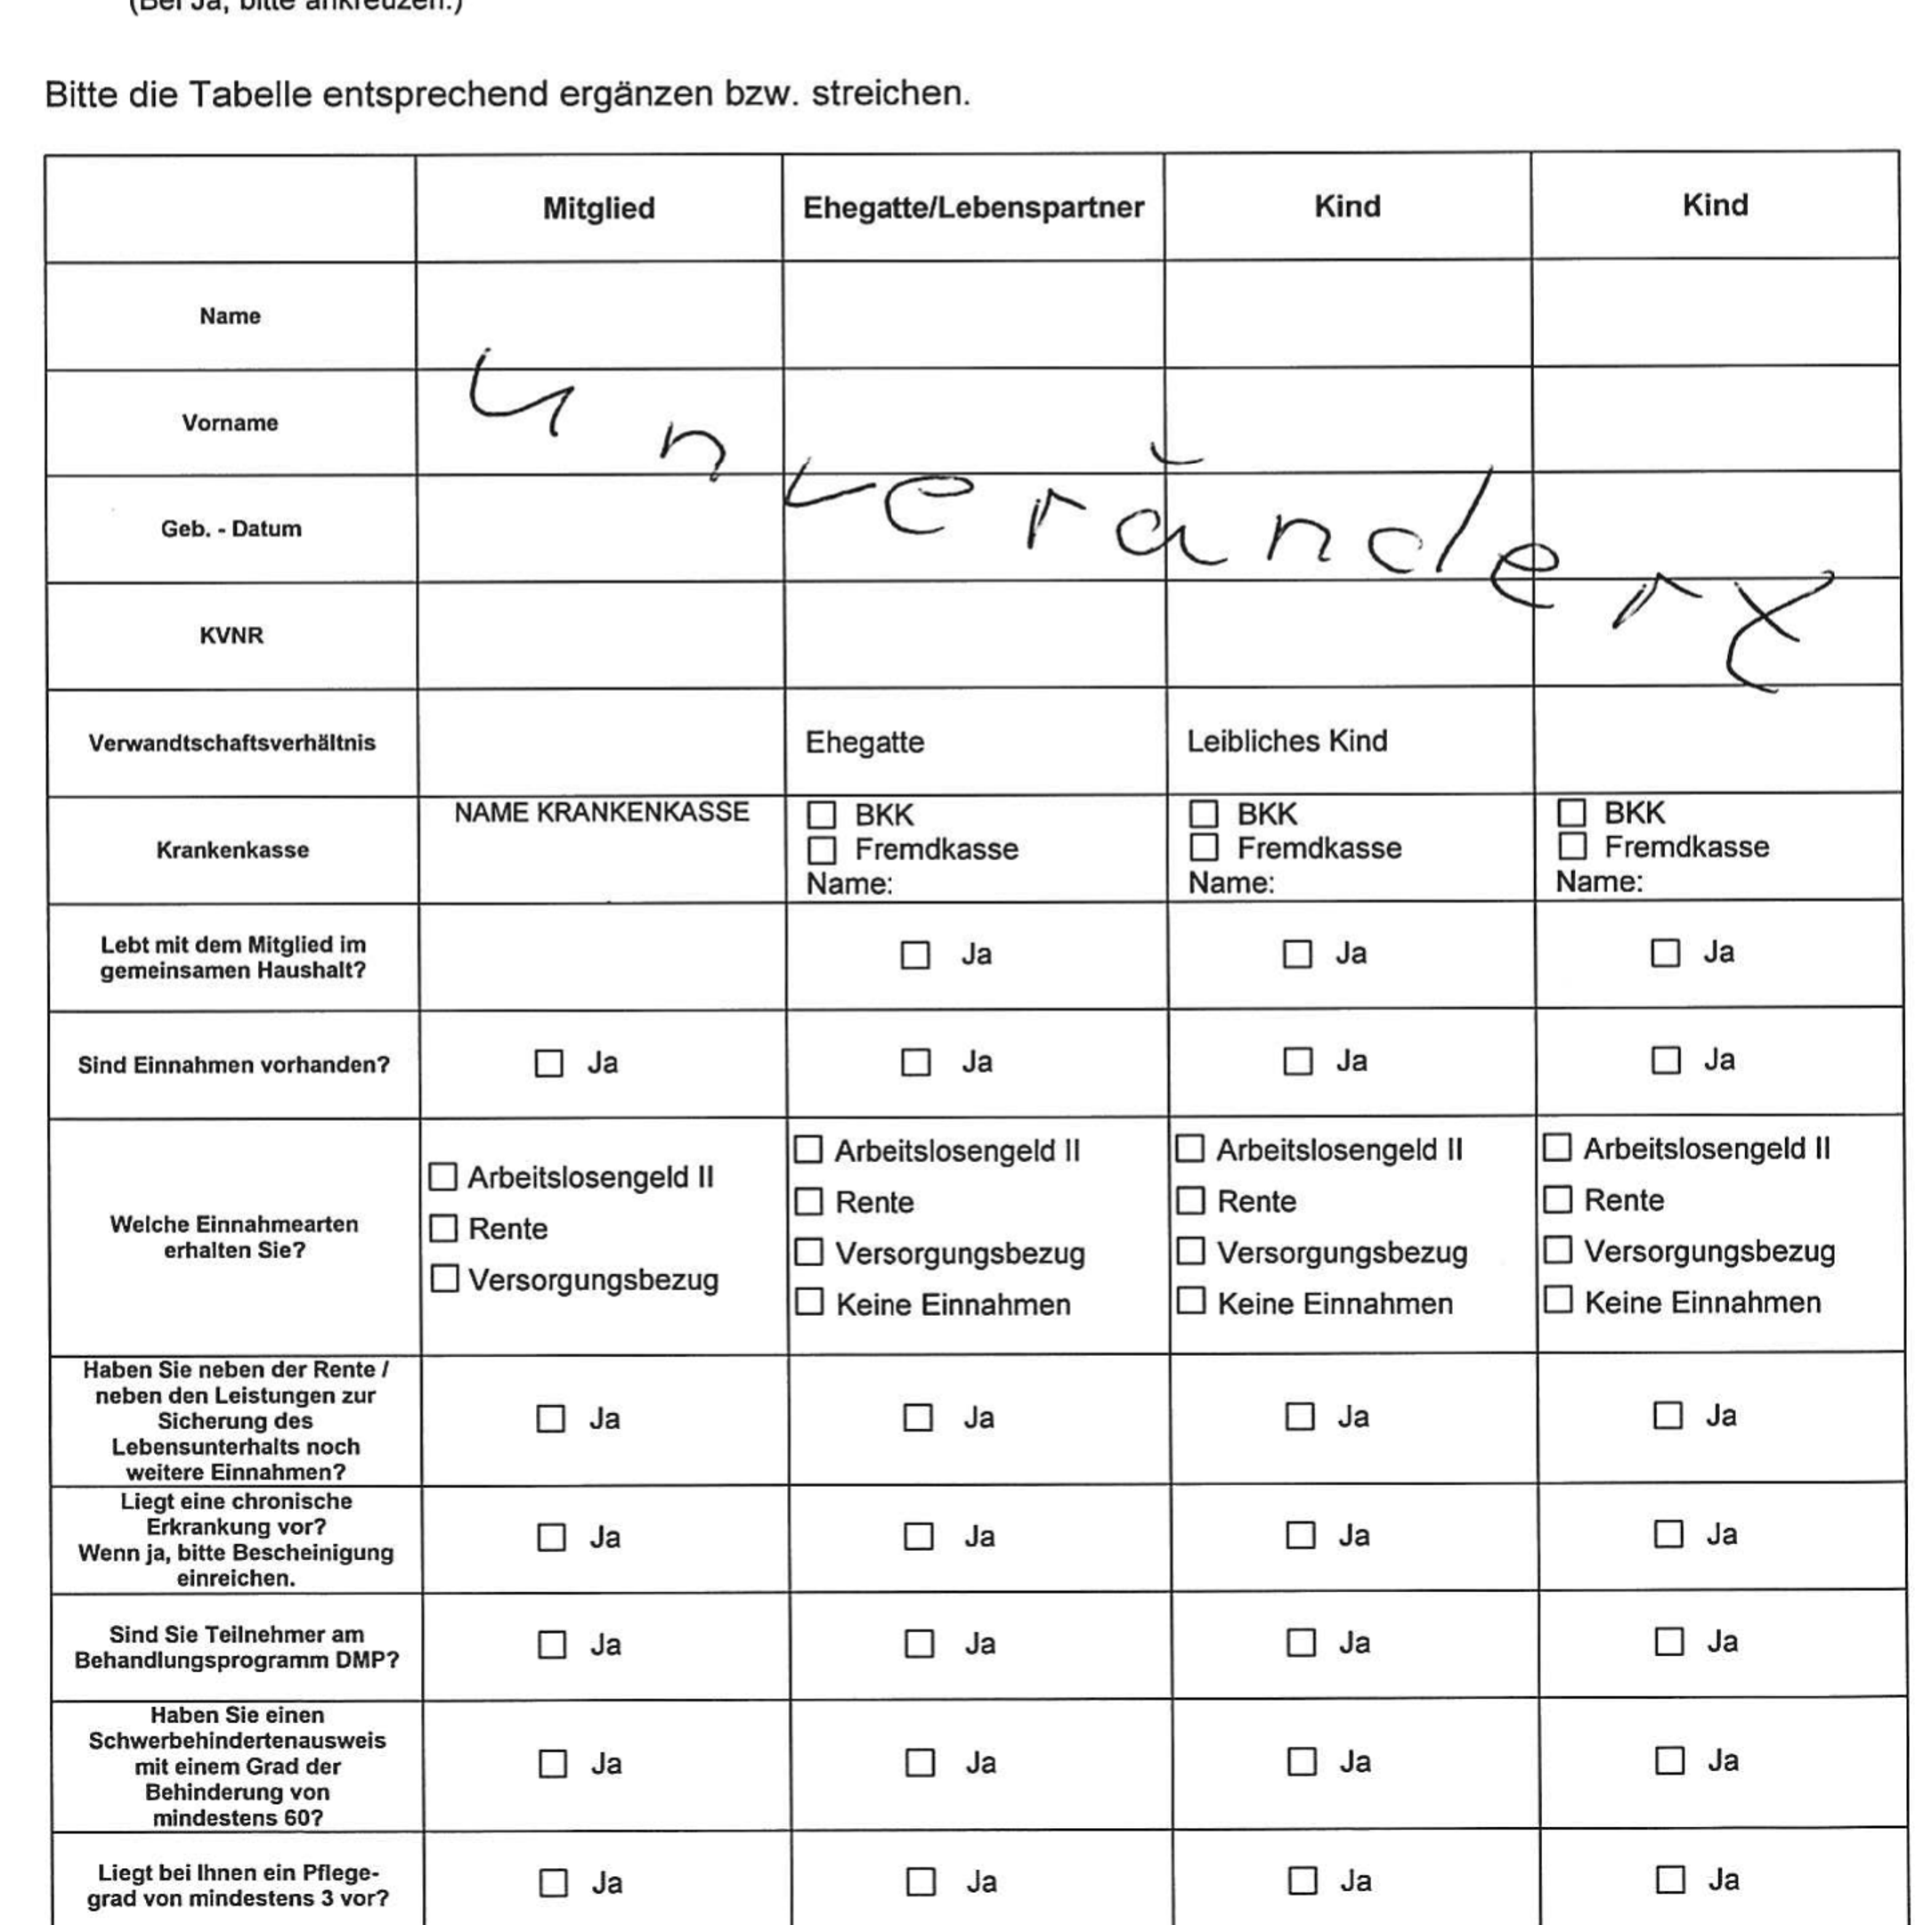 (Bei Ja, bitte ankreuzen.)
Bitte die Tabelle entsprechend ergänzen bzw. streichen.
Mitglied Ehegatte/Lebenspartner Kind Kind
Name
Vorname
unverändert
Geb. - Datum
KVNR
Verwandtschaftsverhältnis Ehegatte Leibliches Kind
Krankenkasse
NAME KRANKENKASSE
☐ BKK ☐ BKK ☐ BKK
☐ Fremdkasse ☐ Fremdkasse ☐ Fremdkasse
Name: Name: Name:
Lebt mit dem Mitglied im
gemeinsamen Haushalt?
☐ Ja ☐ Ja ☐ Ja
Sind Einnahmen vorhanden? ☐ Ja ☐ Ja ☐ Ja ☐ Ja
Welche Einnahmearten
erhalten Sie?
☐ Arbeitslosengeld II
☐ Rente
☐ Versorgungsbezug
☐ Arbeitslosengeld II
☐ Rente
☐ Versorgungsbezug
☐ Keine Einnahmen
☐ Arbeitslosengeld II
☐ Rente
☐ Versorgungsbezug
☐ Keine Einnahmen
☐ Arbeitslosengeld II
☐ Rente
☐ Versorgungsbezug
☐ Keine Einnahmen
Haben Sie neben der Rente /
neben den Leistungen zur
Sicherung des
Lebensunterhalts noch
weitere Einnahmen?
☐ Ja ☐ Ja ☐ Ja ☐ Ja
Liegt eine chronische
Erkrankung vor?
Wenn ja, bitte Bescheinigung
einreichen.
☐ Ja ☐ Ja ☐ Ja ☐ Ja
Sind Sie Teilnehmer am
Behandlungsprogramm DMP?
☐ Ja ☐ Ja ☐ Ja ☐ Ja
Haben Sie einen
Schwerbehindertenausweis
mit einem Grad der
Behinderung von
mindestens 60?
☐ Ja ☐ Ja ☐ Ja ☐ Ja
Liegt bei Ihnen ein Pflege-
grad von mindestens 3 vor?
☐ Ja ☐ Ja ☐ Ja ☐ Ja